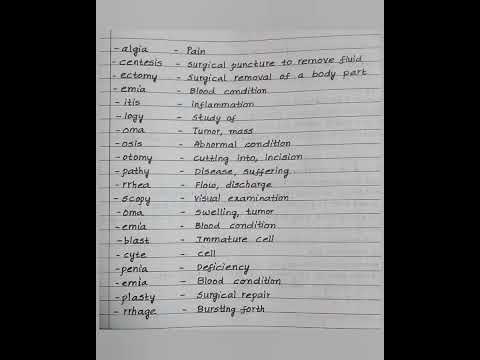 -algia - Pain
-centesis - Surgical puncture to remove fluid
-ectomy - Surgical removal of a body part
-emia - Blood condition
-itis - inflammation
-logy - Study of
-oma - Tumor, mass
-osis - Abnormal condition
-otomy - Cutting into, incision
-pathy - Disease, suffering
-rrhea - Flow, discharge
-scopy - Visual examination
-oma - Swelling, tumor
-emia - Blood condition
-blast - Immature cell
-cyte - cell
-penia - Deficiency
-emia - Blood condition
-plasty - Surgical repair
-rrhage - Bursting forth